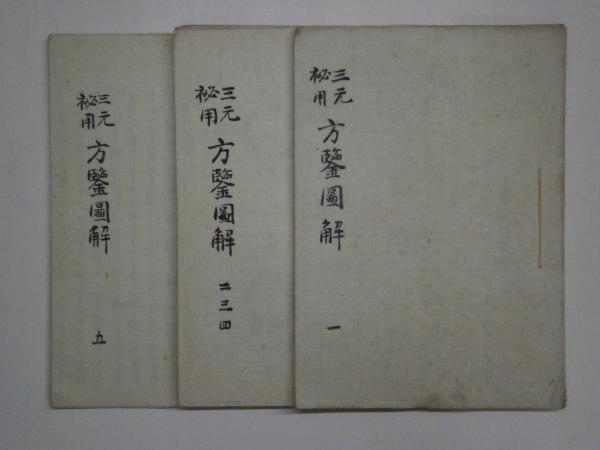 三元
祕用
方鑒圖解
一
三元
祕用
方鑒圖解
二三四
三元
祕用
方鑒圖解
五